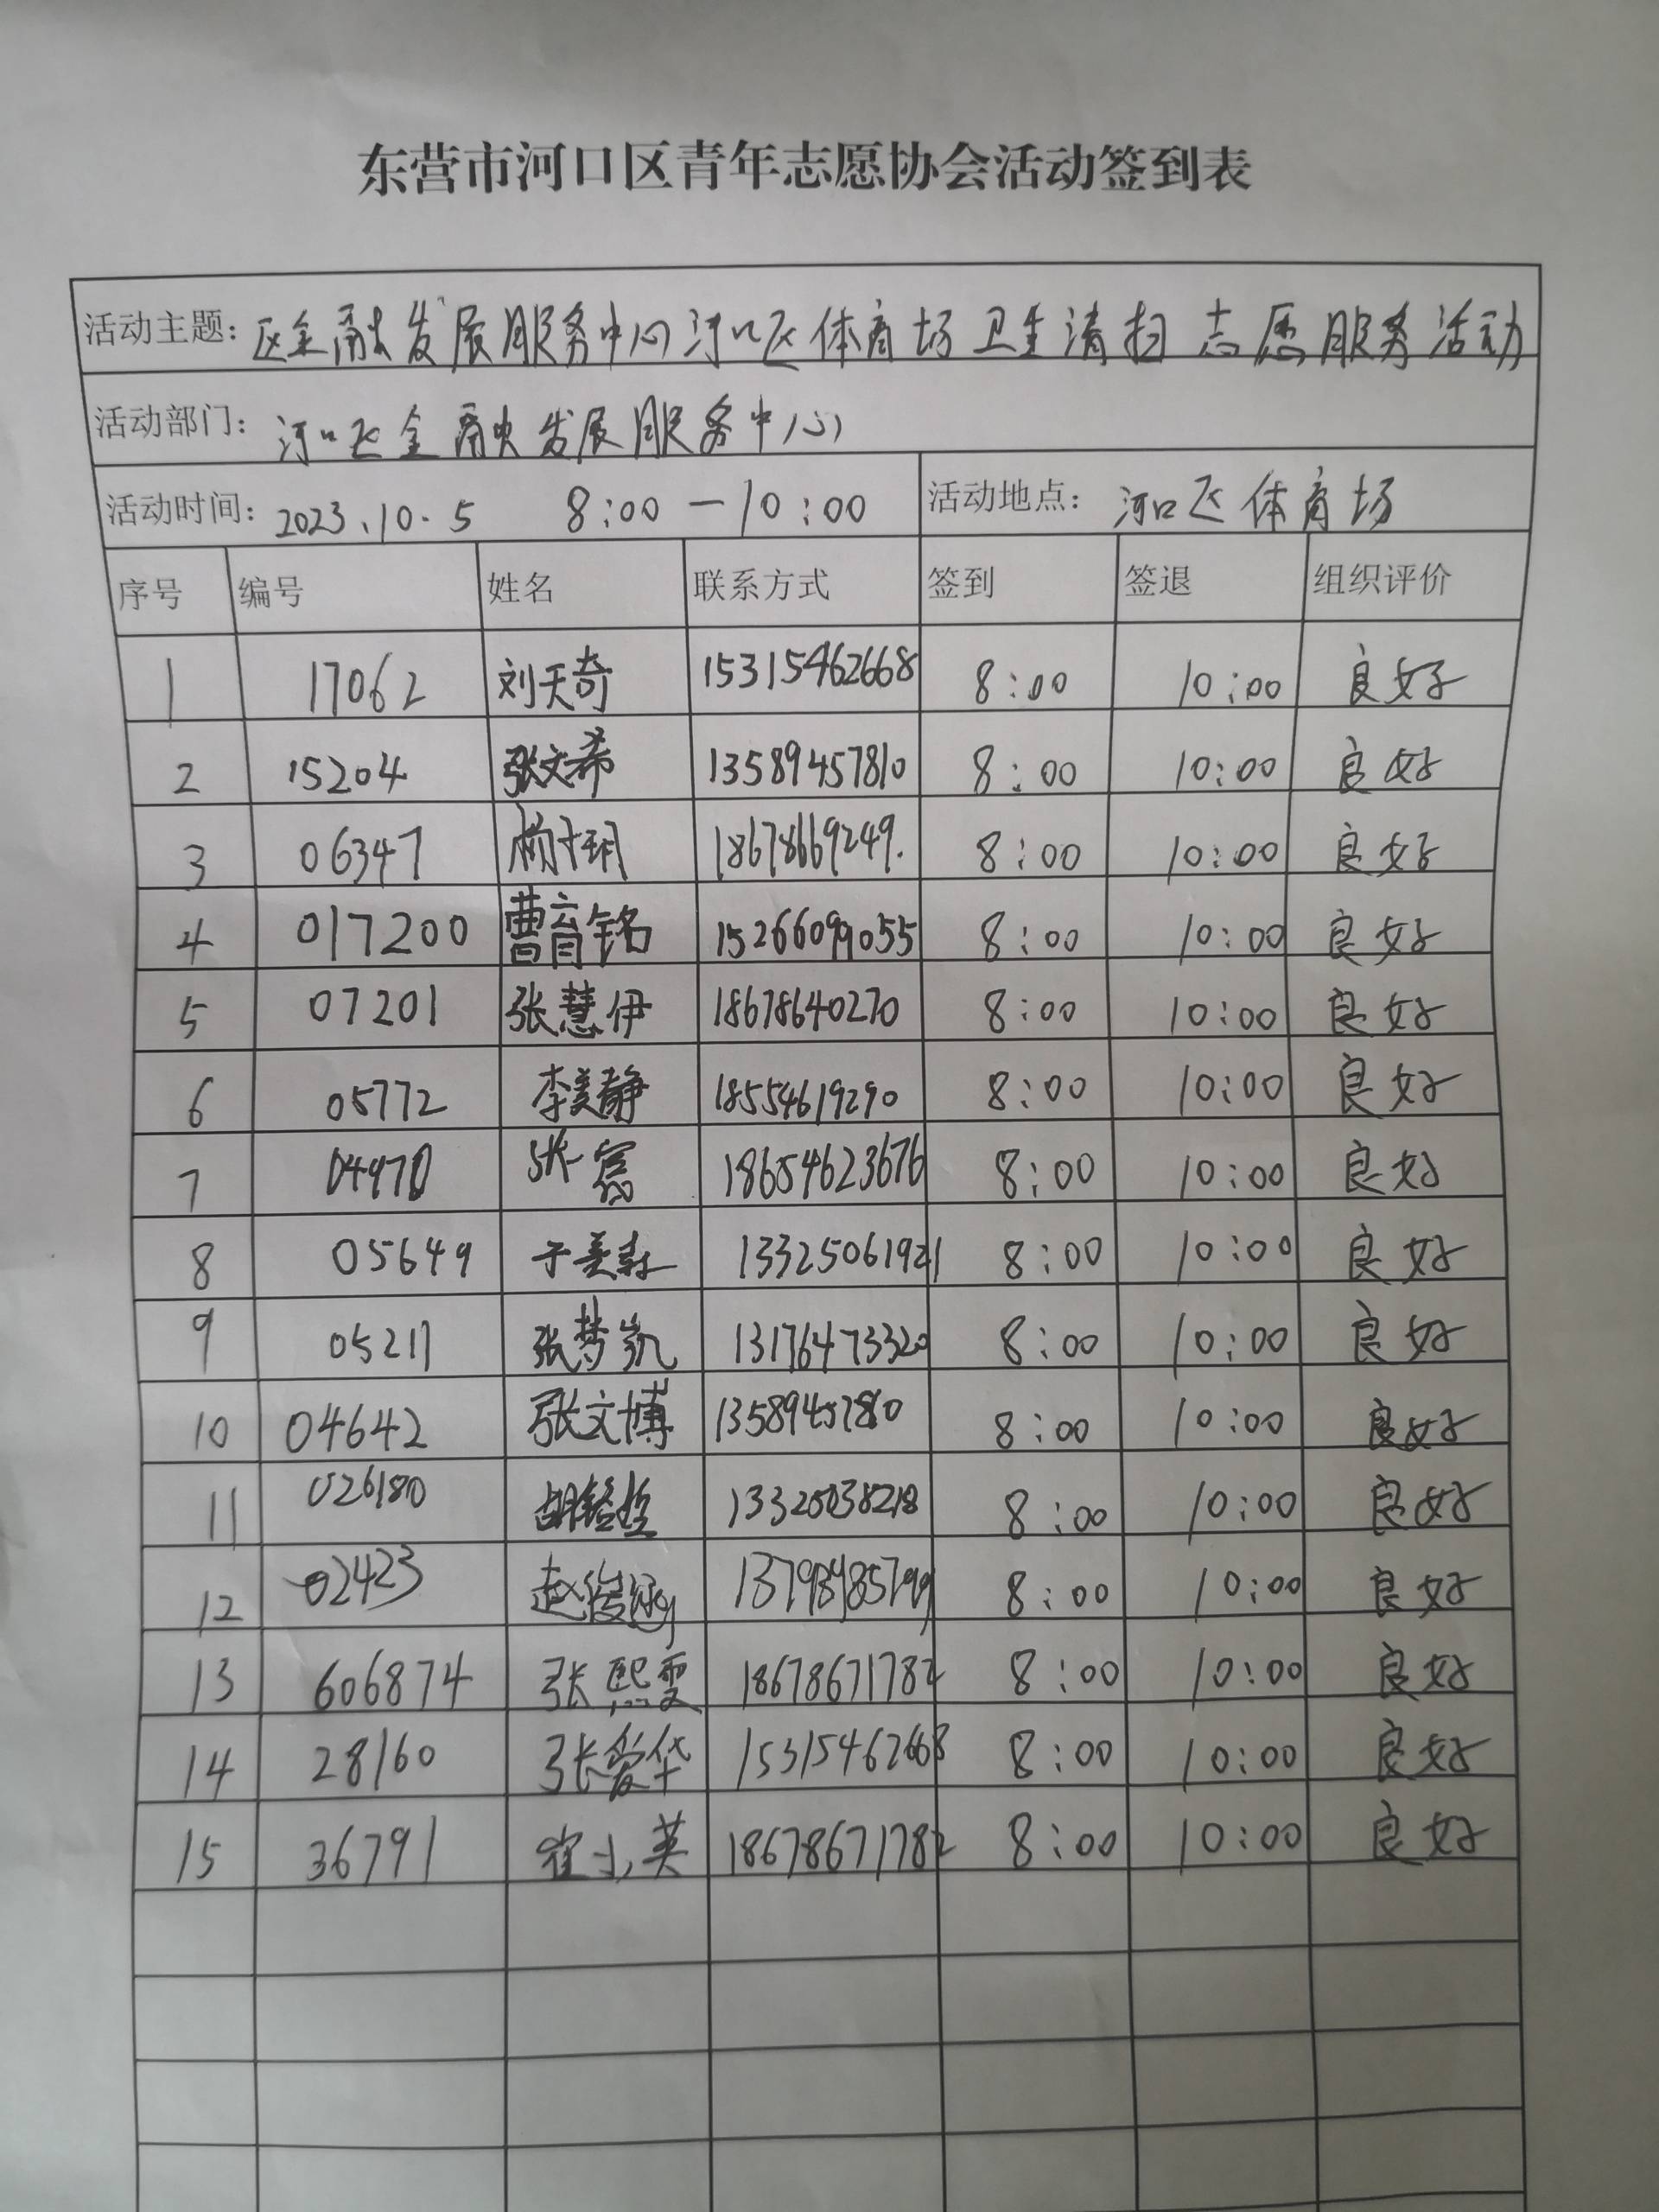 东营市河口区青年志愿协会活动签到表
活动主题：区金融发展服务中心河口区体育场卫生清扫志愿服务活动
活动部门：河口区金融发展服务中心
活动时间：2023.10.5 8:00—10:00 活动地点：河口区体育场
序号 编号 姓名 联系方式 签到 签退 组织评价
1 17062 刘天奇 15315462668 8:00 10:00 良好
2 15204 张文希 13589457810 8:00 10:00 良好
3 06347 18678669249. 8:00 10:00 良好
4 017200 曹育铭 15266099055 8:00 10:00 良好
5 07201 张慧伊 18678640270 8:00 10:00 良好
6 05772 李美静 18554619290 8:00 10:00 良好
7 张 18654623676 8:00 10:00 良好
8 05649 于美 13325061921 8:00 10:00 良好
9 05211 张梦凯 13176473320 8:00 10:00 良好
10 04642 张文博 8:00 10:00 良好
11 026180 胡 8:00 10:00 良好
12 02423 赵俊 8:00 10:00 良好
13 606874 张熙雯 18678671782 8:00 10:00 良好
14 28160 张爱华 15315462668 8:00 10:00 良好
15 36791 崔小英 18678671782 8:00 10:00 良好